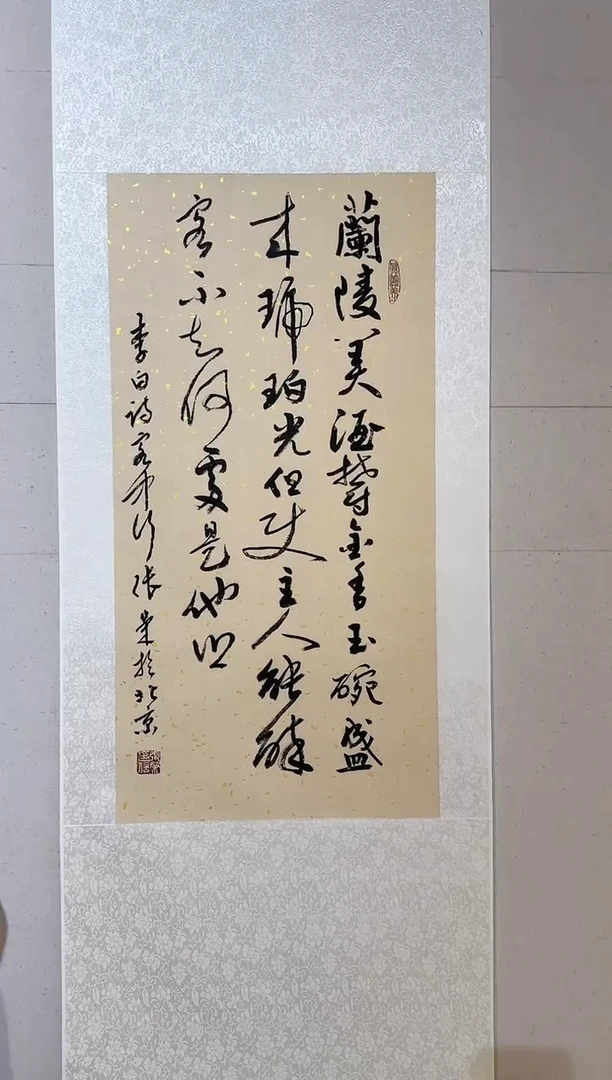 蘭陵美酒鬱金香玉碗盛
来琥珀光但使主人能醉
客不知何處是他鄉
李白詩客中行张於北京